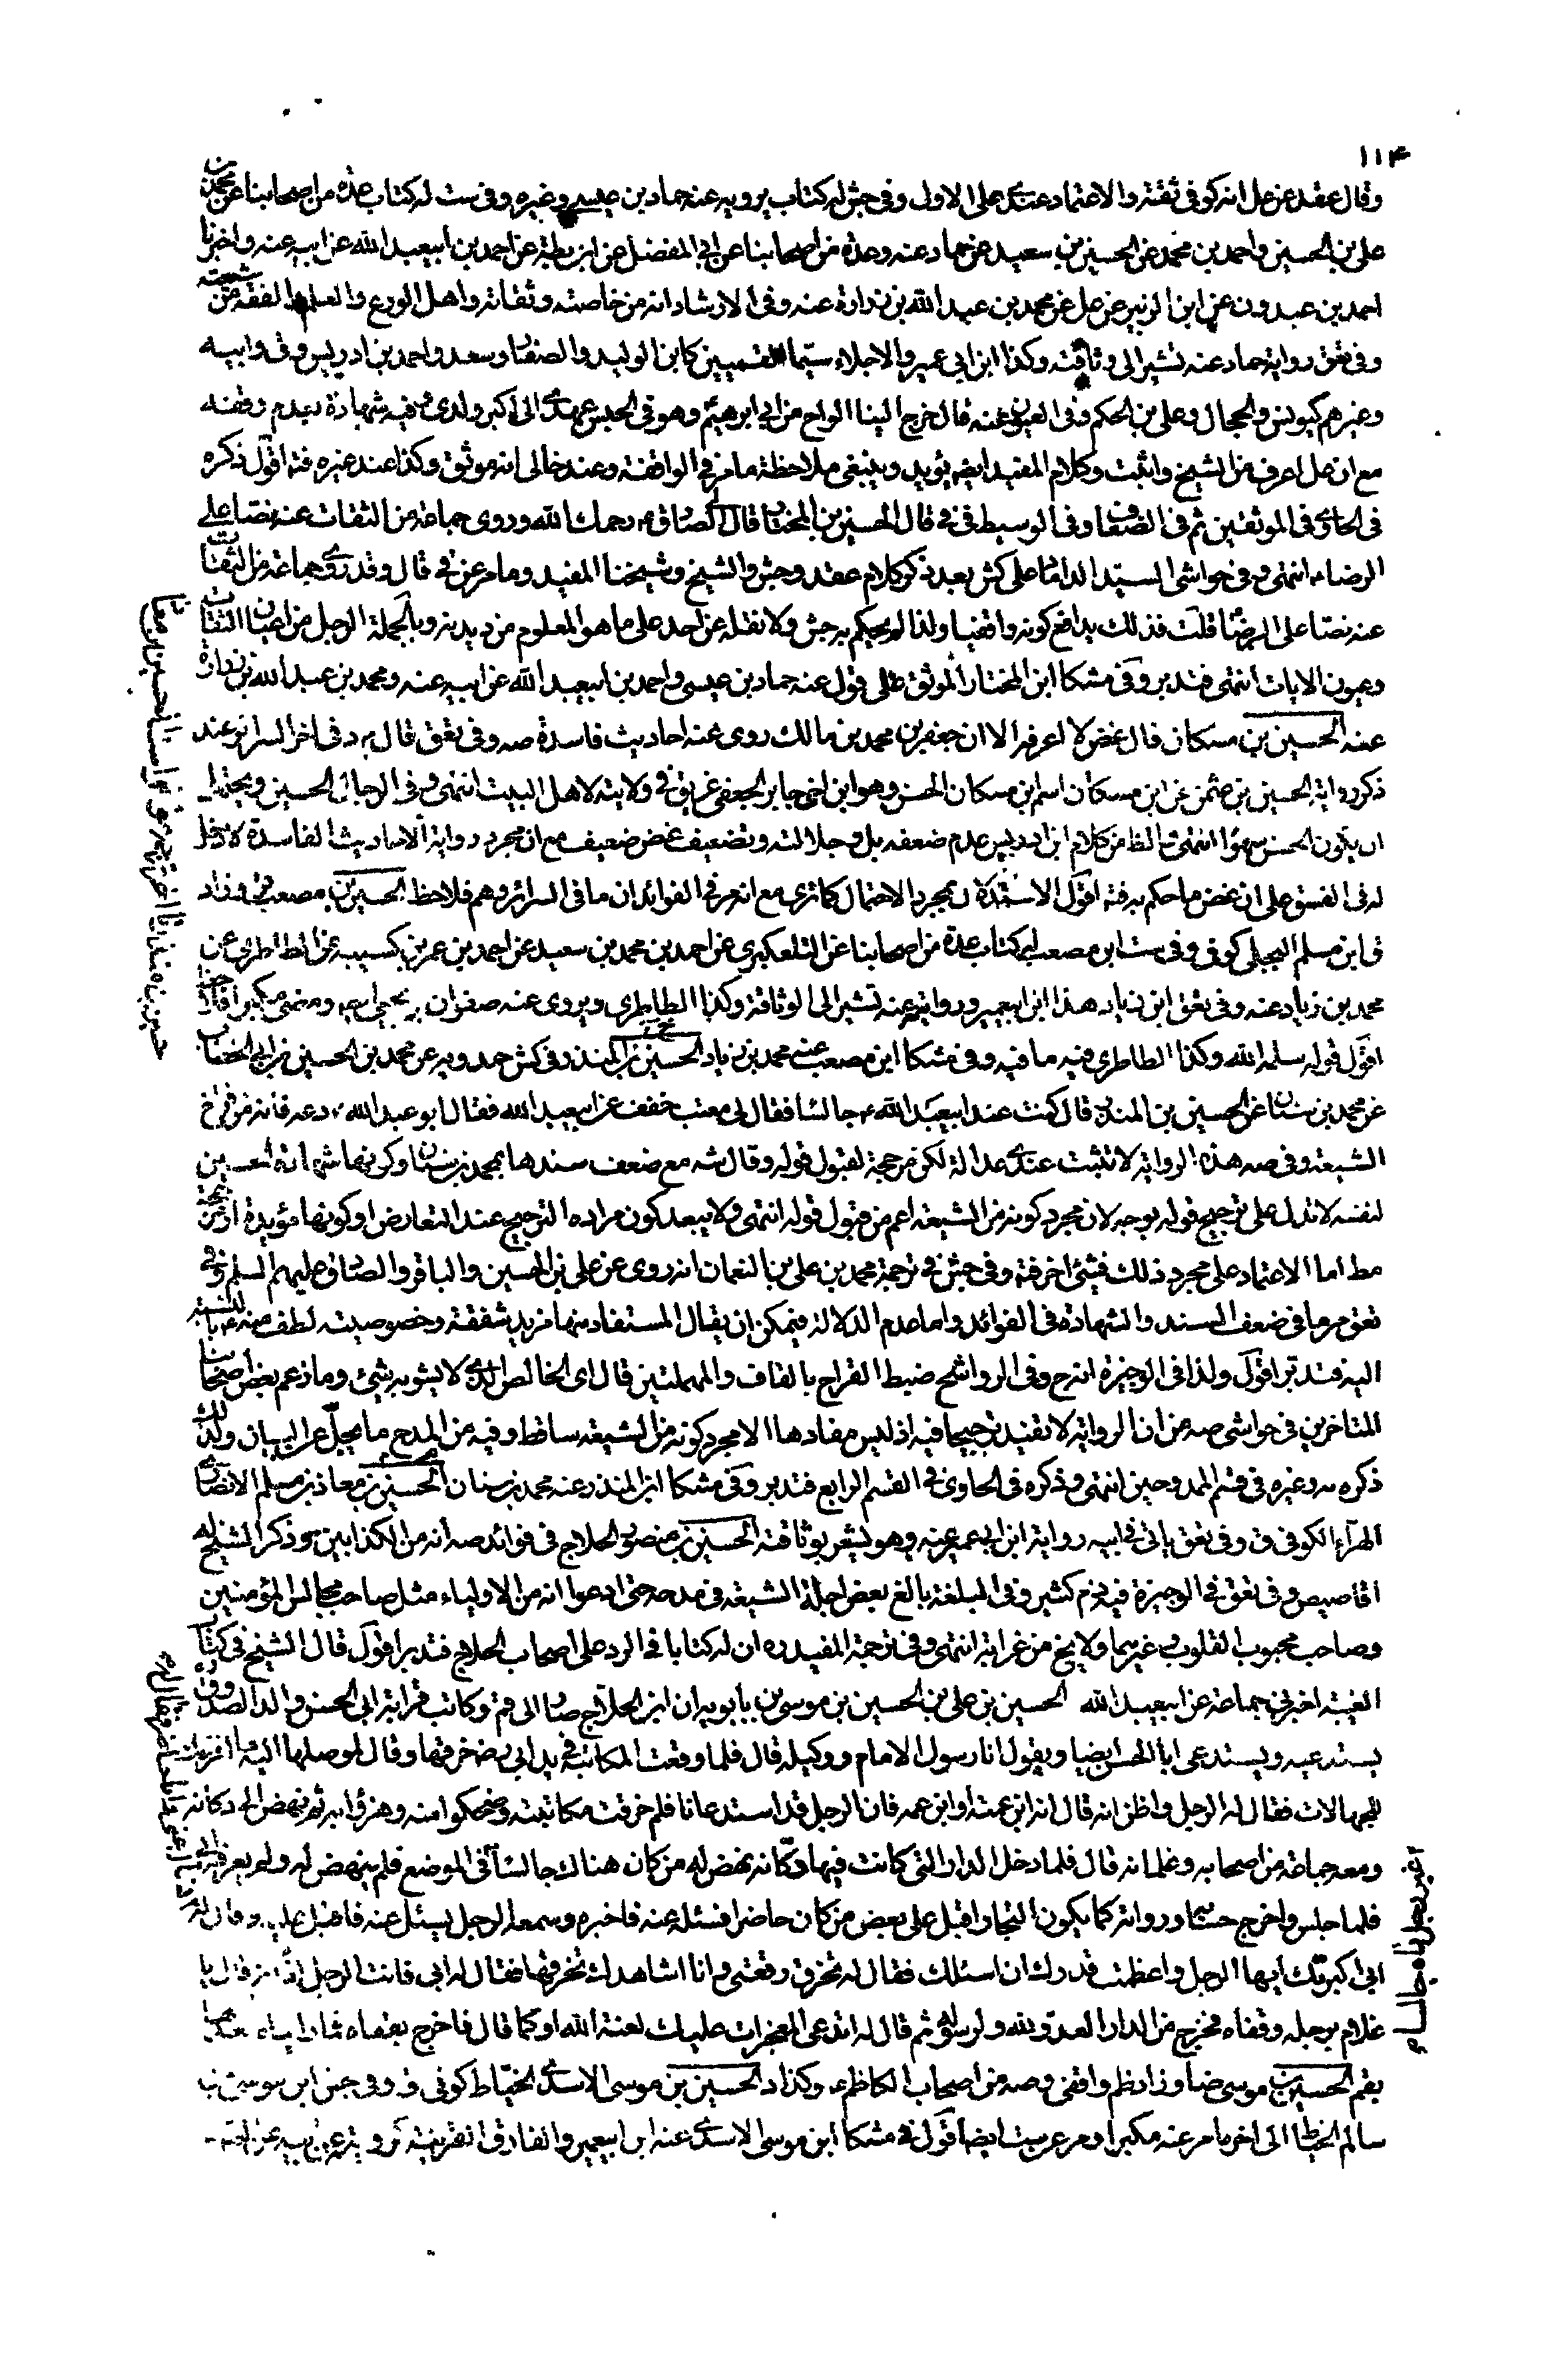 ١١۴
وقال عقد عن عل انه كوفى ثقة والاعتماد عندى على الاول وفى جش له كتاب يرويه عنه حماد بن عيسى وغيره وفى ست له كتاب عدة من اصحابنا عن محمد بن
على بن الحسين واحمد بن محمد عن الحسين بن سعيد عن حماد عنه وعدة من اصحابنا عن ابى المفضل عن ابن بطة عن احمد بن ابيعبد الله عن ابيه عنه واخبرنا
احمد بن عبدون عن ابن الزبير عن عل عن محمد بن عبد الله بن زرارة عنه وفى الارشاد انه من خاصته وثقاته واهل الورع والعلم والفقه من شيعته
وفى تعق رواية حماد عنه تشير الى وثاقته وكذا ابن ابى عمير والاجلاء سيما القميين كابن الوليد والصفار وسعد واحمد بن ادريس وق وابيه
وغيرهم كيونس والحجال وعلى بن الحكم وفى العيون عنه قال خرج الينا الواح من ابى ابرهيم وهو فى الحبس عهدى الى اكبر ولدى فيه شهادة بعدم وقفه
مع ان عل اعرف من الشيخ واثبت وكلام المفيد ايضا يؤيد وينبغى ملاحظة ما مر فى الواقفة وعند خالى انه موثق وكذا عند غيره فتد اقول ذكره
فى الحاوى فى الموثقين ثم فى الضعاف وفى الوسيط فى قال الحسين بن المختار قال لى الصادق رحمك الله وروى جماعة من الثقات عنه نصا على
الرضاء انتهى وفى حواشى السيد الداماد على كش بعد ذكر كلام عقد وجش والشيخ وشيخنا المفيد وما مر عن فى قال وقد روى جماعة من الثقات
عنه نصا على الرضا قلت فذلك يدافع كونه واقفيا ولذا لم يحكم به جش ولا نقله عن احد على ما هو المعلوم من ديدنه وبالجملة الرجل من اعيان الثقات
وعيون الاثبات انتهى فتدبر وفى مشكا ابن المختار الموثق عنه حماد بن عيسى واحمد بن ابيعبد الله عن ابيه عنه ومحمد بن عبد الله بن زرارة
عنه الحسين بن مسكان قال غض لا اعرفه الا ان جعفر بن محمد بن مالك روى عنه احاديث فاسدة صه وفى تعق قال فى اخر السرائر عند
ذكر رواية الحسين بن عثمن عن ابن مسكان اسم ابن مسكان الحسن وهو ابن اخى جابر الجعفى غريق فى ولايته لاهل البيت انتهى وفى الرجال الحسين ويحتمل
ان يكون الحسن سهوا انتهى والظ من كلام ابن ادريس عدم ضعفه بل وجلالته وتضعيف غض ضعيف مع ان مجرد رواية الاحاديث الفاسدة لا دخل
له فى الفسق على ان غض ما حكم به فتد اقول بمجرد الاحتمال كما ترى مع انه مر فى الفوائد ان ما فى السرائر وهم فلاحظ الحسين بن مصعب ق وزاد
ق ابن مسلم البجلى كوفى وفى ست ابن مصعب له كتاب عدة من اصحابنا عن التلعكبرى عن احمد بن محمد بن سعيد عن احمد بن عمر بن كسيبه عن الطاطرى عن
محمد بن زياد عنه وفى تعق ابن زياد هذا ابن ابيعمير وروايته عنه تشير الى الوثاقة وكذا الطاطرى ويروى عنه صفوان بن يحيى
اقول قوله سلمه الله وكذا الطاطرى فيه ما فيه وفى مشكا ابن مصعب عنه محمد بن زياد الحسين بن المنذر فى كش حمدويه عن محمد بن الحسين بن ابى الخطاب
عن محمد بن سنان عن الحسين بن المنذر قال كنت عند ابيعبد الله ء جالسا فقال لى معتب خفف عن ابيعبد الله فقال ابو عبد الله ء دعه فانه من فراخ
الشيعة وفى صه هذه الرواية لا تثبت عندى عدالة لكن مرجحة لقبول قوله وقال شه مع ضعف سندها بمحمد بن سنان وكونها شهادة الحسين
لنفسه لا تدل على ترجيح قوله بوجه لان مجرد كونه من الشيعة اعم من قبول قوله انتهى ولا يبعد كون مراده الترجيح عند التعارض او كونها مؤيدة او مرجحة
مط اما الاعتماد على مجرد ذلك فشئ اخر فتد وفى جش فى ترجمة محمد بن على بن النعمان انه روى عن على بن الحسين والباقر والصادق عليهم السلم وفى
تعق مر ما فى ضعف السند والشهادة فى الفوائد واما عدم الدلالة فيمكن ان يقال المستفاد منها مزيد شفقة وخصوصية لطف منه ء بالنسبة
اليه فتدبر اقول ولذا فى الوجيزة انه ح وفى الرواشح ضبط القراح بالقاف والمهملتين قال اى الخالص الذى لا يشوبه شئ وما زعم بعض اصحابنا
المتاخرين فى حواشى صه من ان الرواية لا تفيد ترجيحا فيه اذ ليس مفادها الا مجرد كونه من الشيعة ساقط وفيه من المدح ما يجل عن البيان ولذلك
ذكره مه وغيره فى قسم الممدوحين انتهى وذكره فى الحاوى فى القسم الرابع فتدبر وفى مشكا ابن المنذر عنه محمد بن سنان الحسين بن معاذ بن مسلم الانصارى
الهراء الكوفى ق وفى تعق ياتى فى ابيه رواية ابن ابيعمير عنه وهو يشعر بوثاقته الحسين بن منصور الحلاج فى فوائد صه انه من الكذابين وذكر الشيخ له
اقاصيص وفى تعق فى الوجيزة فيه ذم كثير وفى البلغة بالغ بعض اجلة الشيعة فى مدحه حتى ادعوا انه من الاولياء مثل صاحب مجالس المؤمنين
وصاحب محبوب القلوب وغيرهما ولا يخ من غرابة انتهى وفى ترجمة المفيد ره ان له كتابا فى الرد على اصحاب الحلاج فتدبر اقول قال الشيخ فى كتاب
الغيبة اخبرنى جماعة عن ابيعبد الله الحسين بن على بن الحسين بن موسى بن بابويه ان ابن الحلاج صار الى قم وكاتب قرابة ابى الحسن والد الصدوق ره
يستدعيه ويستدعى ابا الحسن ايضا ويقول انا رسول الامام ووكيله قال فلما وقعت المكاتبة فى يد ابى رض خرقها وقال لموصلها اليه ما افرغك
للجهالات فقال له الرجل واظن انه قال انه ابن عمته او ابن عمه فان الرجل قد استدعانا فلم خرقت مكاتبته وضحكوا منه وهزؤا به ثم نهض الى دكانه
ومعه جماعة من اصحابه وغلمانه قال فلما دخل الدار التى كانت فيها دكانه نهض له من كان هناك جالسا فى الموضع فلم ينهض له ولم يعرفه ابى
فلما جلس واخرج حسابه ودواته كما يكون التجار اقبل على بعض من كان حاضرا فسئله عنه فاخبره وسمعه الرجل يسئل عنه فاقبل عليه وقال له
ابى اكبرتك ايها الرجل واعظمت قدرك ان اسئلك فقال له تخرق رقعتى وانا اشاهدك تخرقها فقال له ابى فانت الرجل اذا ثم قال يا
غلام برجله وقفاه فخرج من الدار العدو لله ولرسوله ثم قال له اتدعى المعجزات عليك لعنة الله او كما قال فاخرج بقفاه فما رايناه بعدها
بقم الحسين بن موسى ضا وزاد ظم واقفى وصه من اصحاب الكاظم ء وكذا د الحسين بن موسى الاسدى الخياط كوفى ق وفى جش ابن موسى بن
سالم الخياط الى اخر ما مر عنه مكبرا ومر عن ست ايضا اقول فى مشكا ابن موسى الاسدى عنه ابن ابيعمير والفارق القرينة